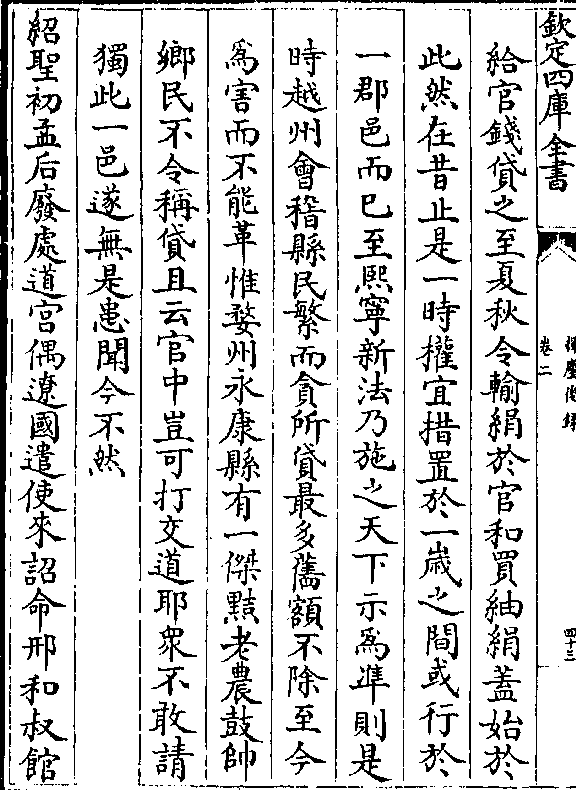 欽定四庫全書
卷二
四十三
給官錢貸之至夏秋令輸絹於官和買紬絹蓋始於
此然在昔止是一時權宜措置於一歲之間或行於
一郡邑而已至熙寧新法乃施之天下示為準則是
時越州會稽縣民繁而貪所貸最多舊額不除至今
為害而不能革惟婺州永康縣有一傑黠老農鼓帥
鄉民不令稱貸且云官中豈可打交道耶衆不敢請
獨此一邑遂無是患聞今不然
紹聖初孟后廢處道宫偶遼國遣使來詔命邢和叔館